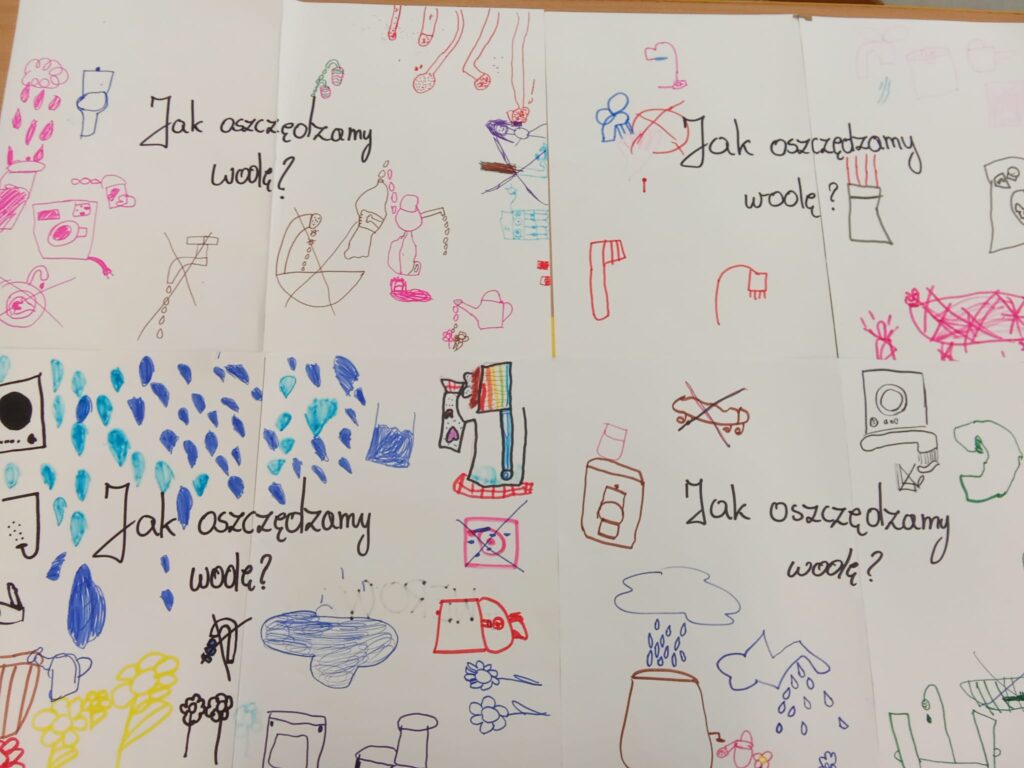 Jak oszczędzamy
wodę?
Jak oszczędzamy
wodę?
Jak oszczędzamy
wodę?
Jak oszczędzamy
wodę?